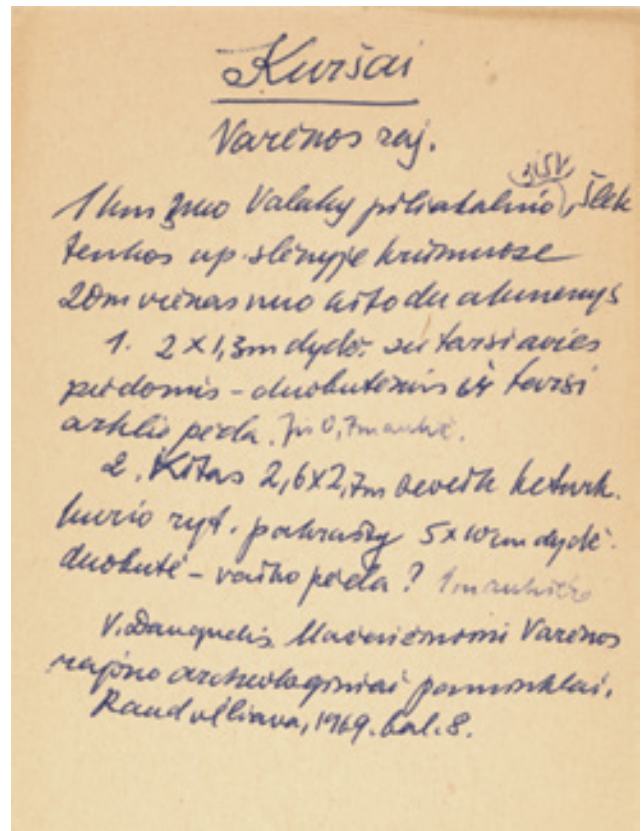 Kuršai
Varėnos raj.
1 km nuo Valakų piliakalnio į ŠV, Šlek
tenkos up. slėnyje krūmuose
20m vienas nuo kito du akmenys
1. 2 x 1,3m dydž. su tarsi avies
pėdomis - duobutėmis ir tarsi
arklio pėda. Jis 0,7m aukšč.
2. Kitas 2,6x2,7m beveik keturk.
kurio ryt. pakrašty 5x10cm dydž.
duobutė - vaiko pėda? 1m aukščio
V. Daugudis. Varėnos
rajono archeologiniai paminklai.
Raud. vėliava, 1969. bal. 8.